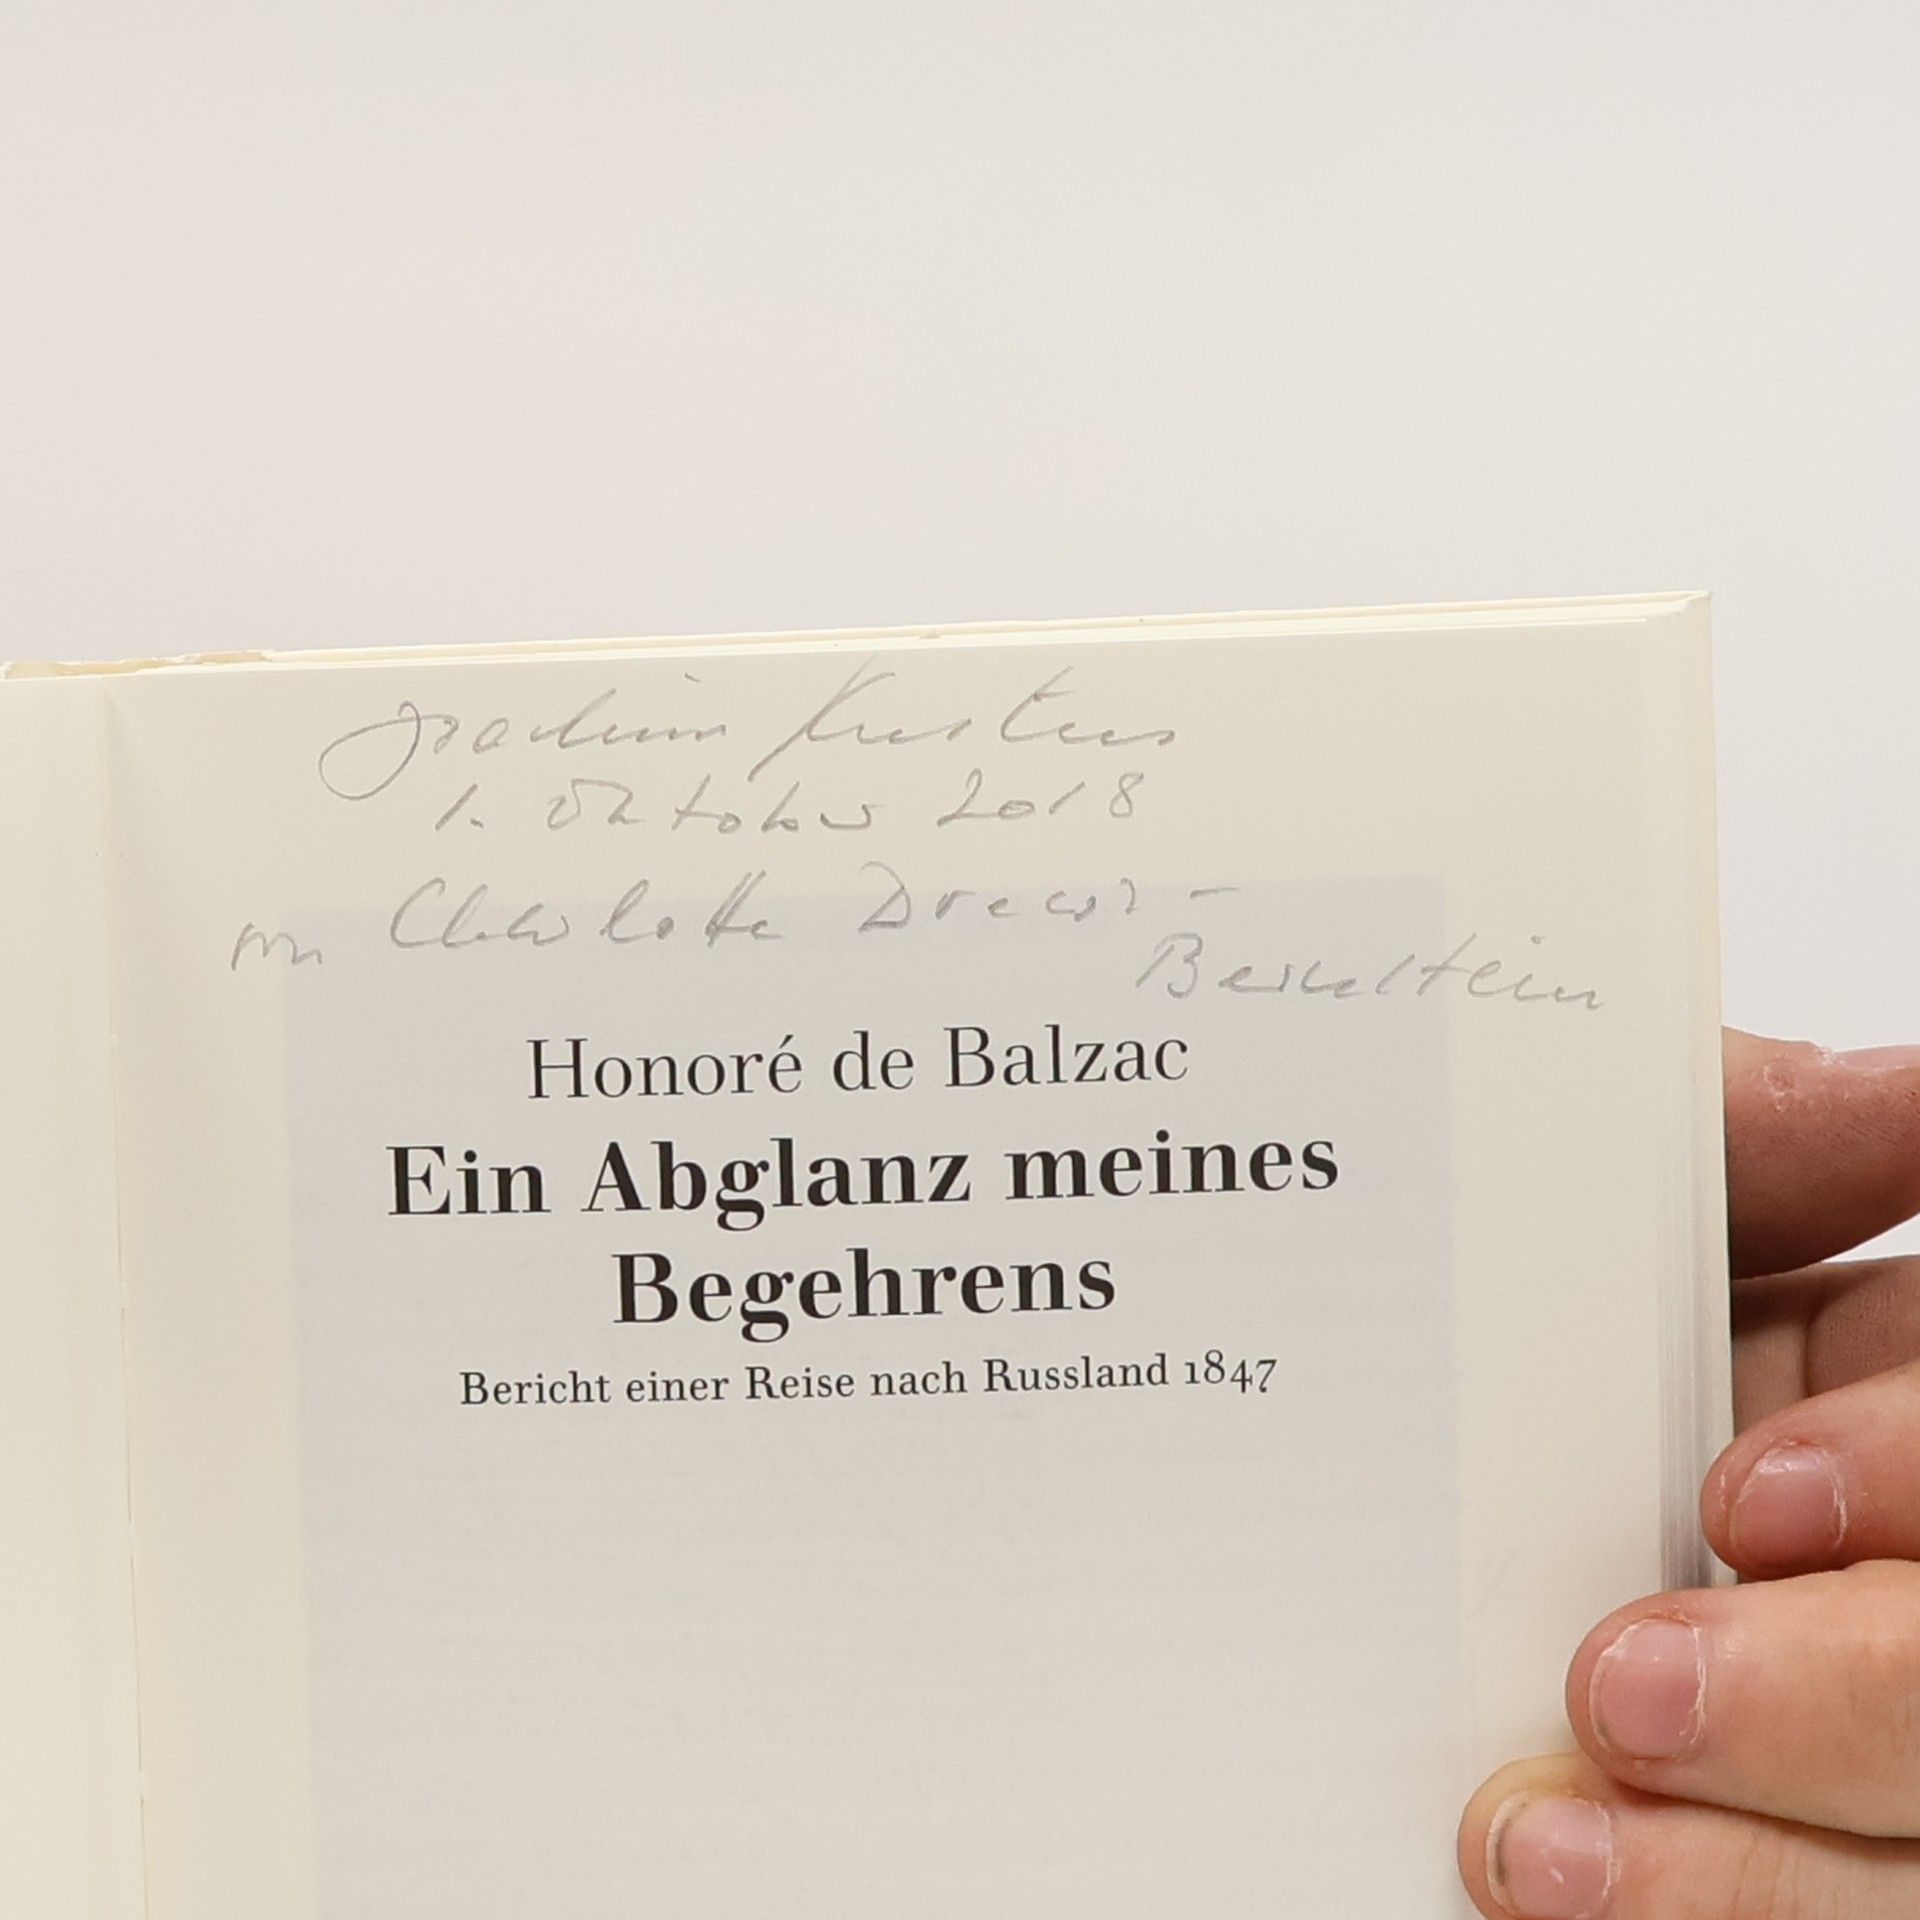 Joachim Kersten
1. Oktober 2018
von Charlotte Drews-
Bernstein
Honoré de Balzac
Ein Abglanz meines
Begehrens
Bericht einer Reise nach Russland 1847